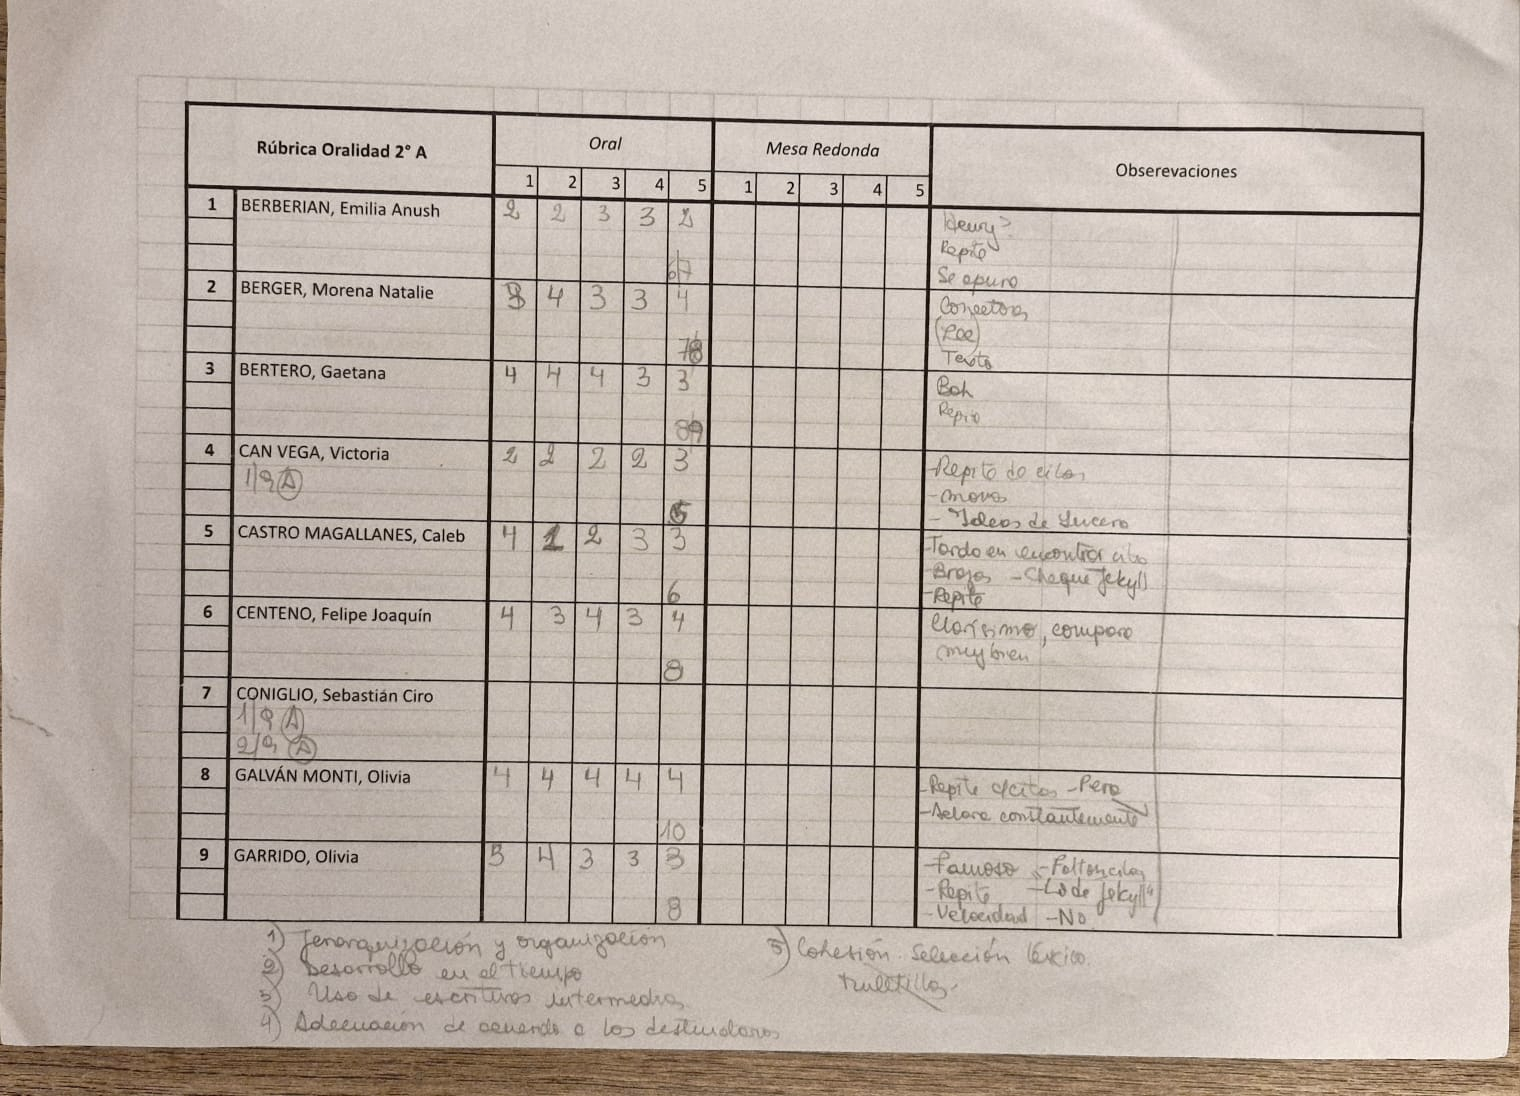 Rúbrica Oralidad 2° A Oral Mesa Redonda Obserevaciones
1 2 3 4 5 1 2 3 4 5
1 BERBERIAN, Emilia Anush 2 2 3 3 2 Henry?
Repite
67 Se apura
2 BERGER, Morena Natalie 3 4 3 3 4 Conectores
(Lee)
78 Texto
3 BERTERO, Gaetana 4 4 4 3 3 Boh
Repite
89
4 CAN VEGA, Victoria 2 2 2 2 3 -Repite de citas
1/9 (A) -Mova
5 - Ideas de Lucero
5 CASTRO MAGALLANES, Caleb 4 2 3 3 -Tarda en encontrar cita
- Cheque Jekyll
6 -Repite
6 CENTENO, Felipe Joaquín 4 3 4 3 4 Clarísimo, compara
muy bien
8
7 CONIGLIO, Sebastián Ciro
1/9 (A)
2/9 (A)
8 GALVÁN MONTI, Olivia 4 4 4 4 4 -Repite citas -Pero
-Aclara constantemente
10
9 GARRIDO, Olivia 3 4 3 3 3 -Famoso -Faltan citas
-Repite -Lo de Jekyll
8 -Velocidad -No
1) Jerarquización y organización
2) Desarrollo en el tiempo
3) Uso de escrituras intermedias
4) Adecuación de acuerdo a los destinatarios
5) Cohesión. Selección léxico.
Muletillas.